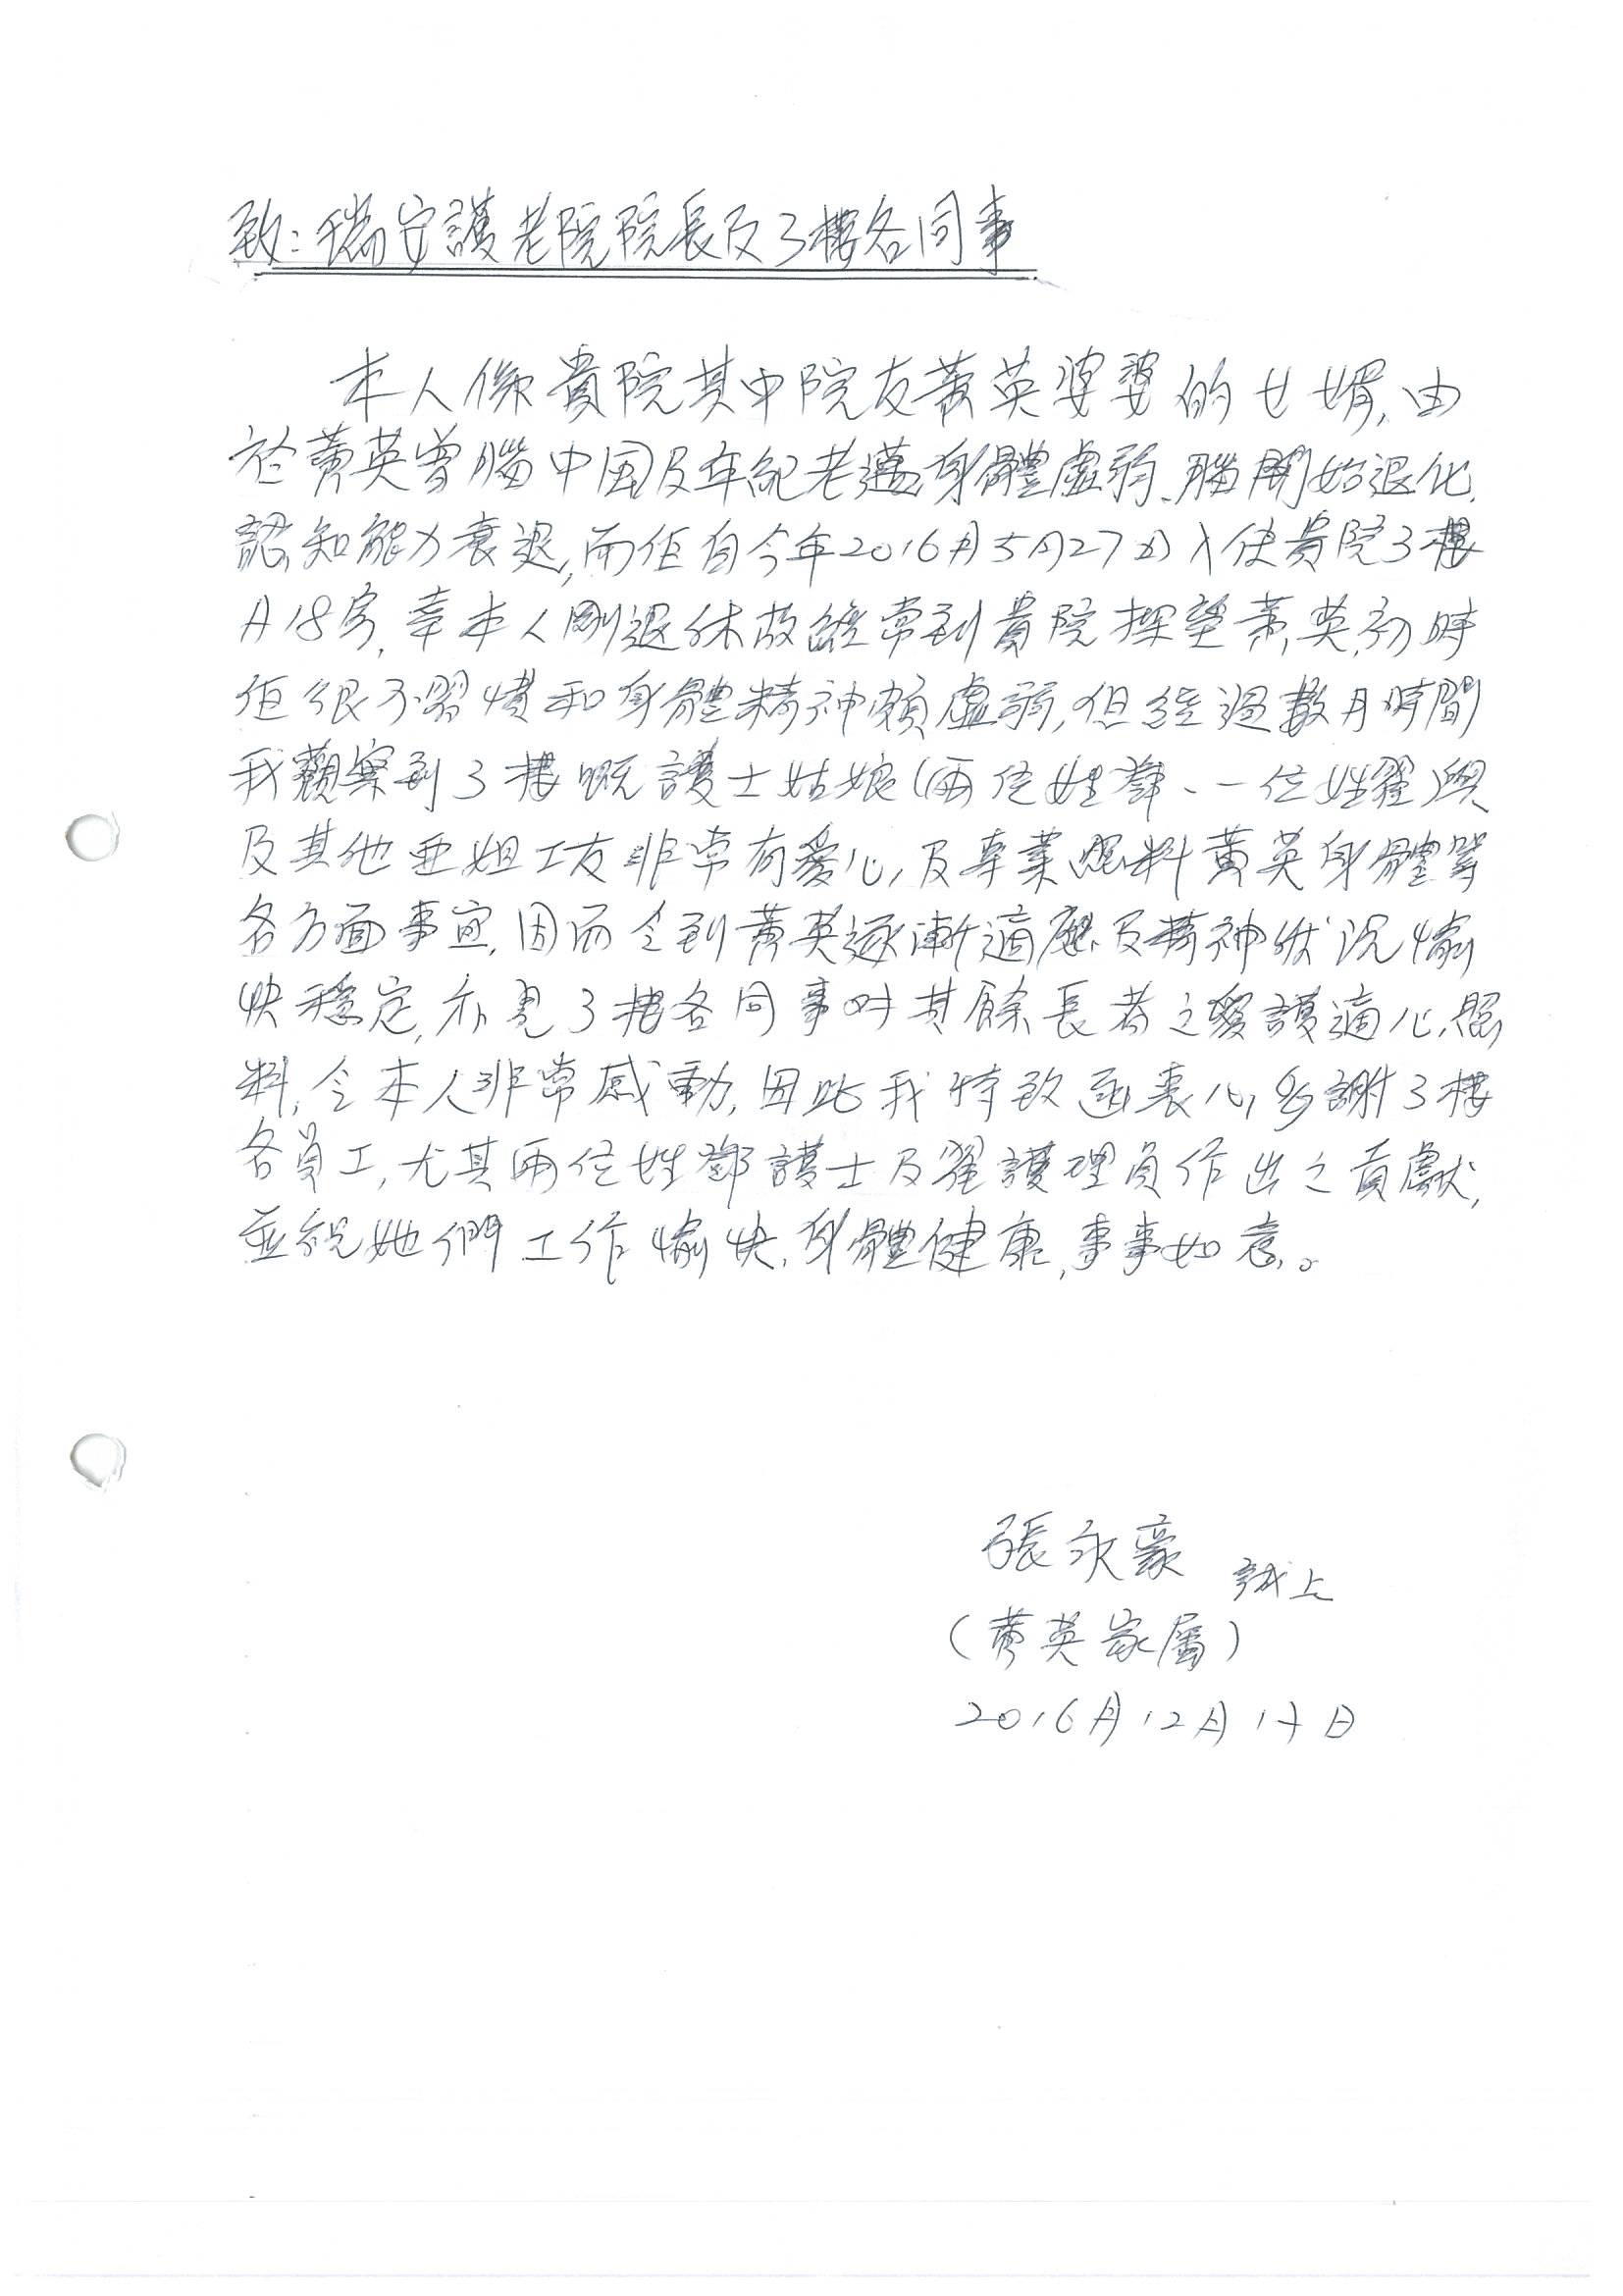 致：瑞安護老院院長及3樓各同事
本人係貴院其中院友黃英婆婆的女婿,由
於黃英曾腦中風及年紀老邁,身體虛弱、腦開始退化,
認知能力衰退,而佢自今年2016月5月27日入住貴院3樓
A18房,幸本人剛退休故經常到貴院探望黃英,初時
佢很不習慣和身體精神頗虛弱,但經過數月時間
我觀察到3樓嘅護士姑娘(兩位姓鄧、一位姓翟)與
及其他亜姐工友非常有愛心,及專業照料黃英身體等
各方面事宜,因而令到黃英逐漸適應及精神狀況愉
快穩定,亦見3樓各同事對其餘長者之愛護適心照
料,令本人非常感動,因此我特致函衷心多謝3樓
各員工,尤其兩位姓鄧護士及翟護理員作出之貢獻,
並祝她們工作愉快,身體健康,事事如意。
張永豪 誠上
(黃英家屬)
2016月12月17日